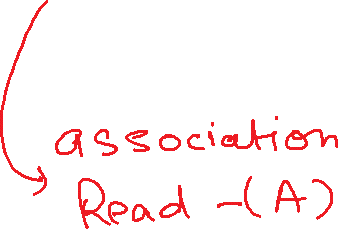 association
Read -(A)